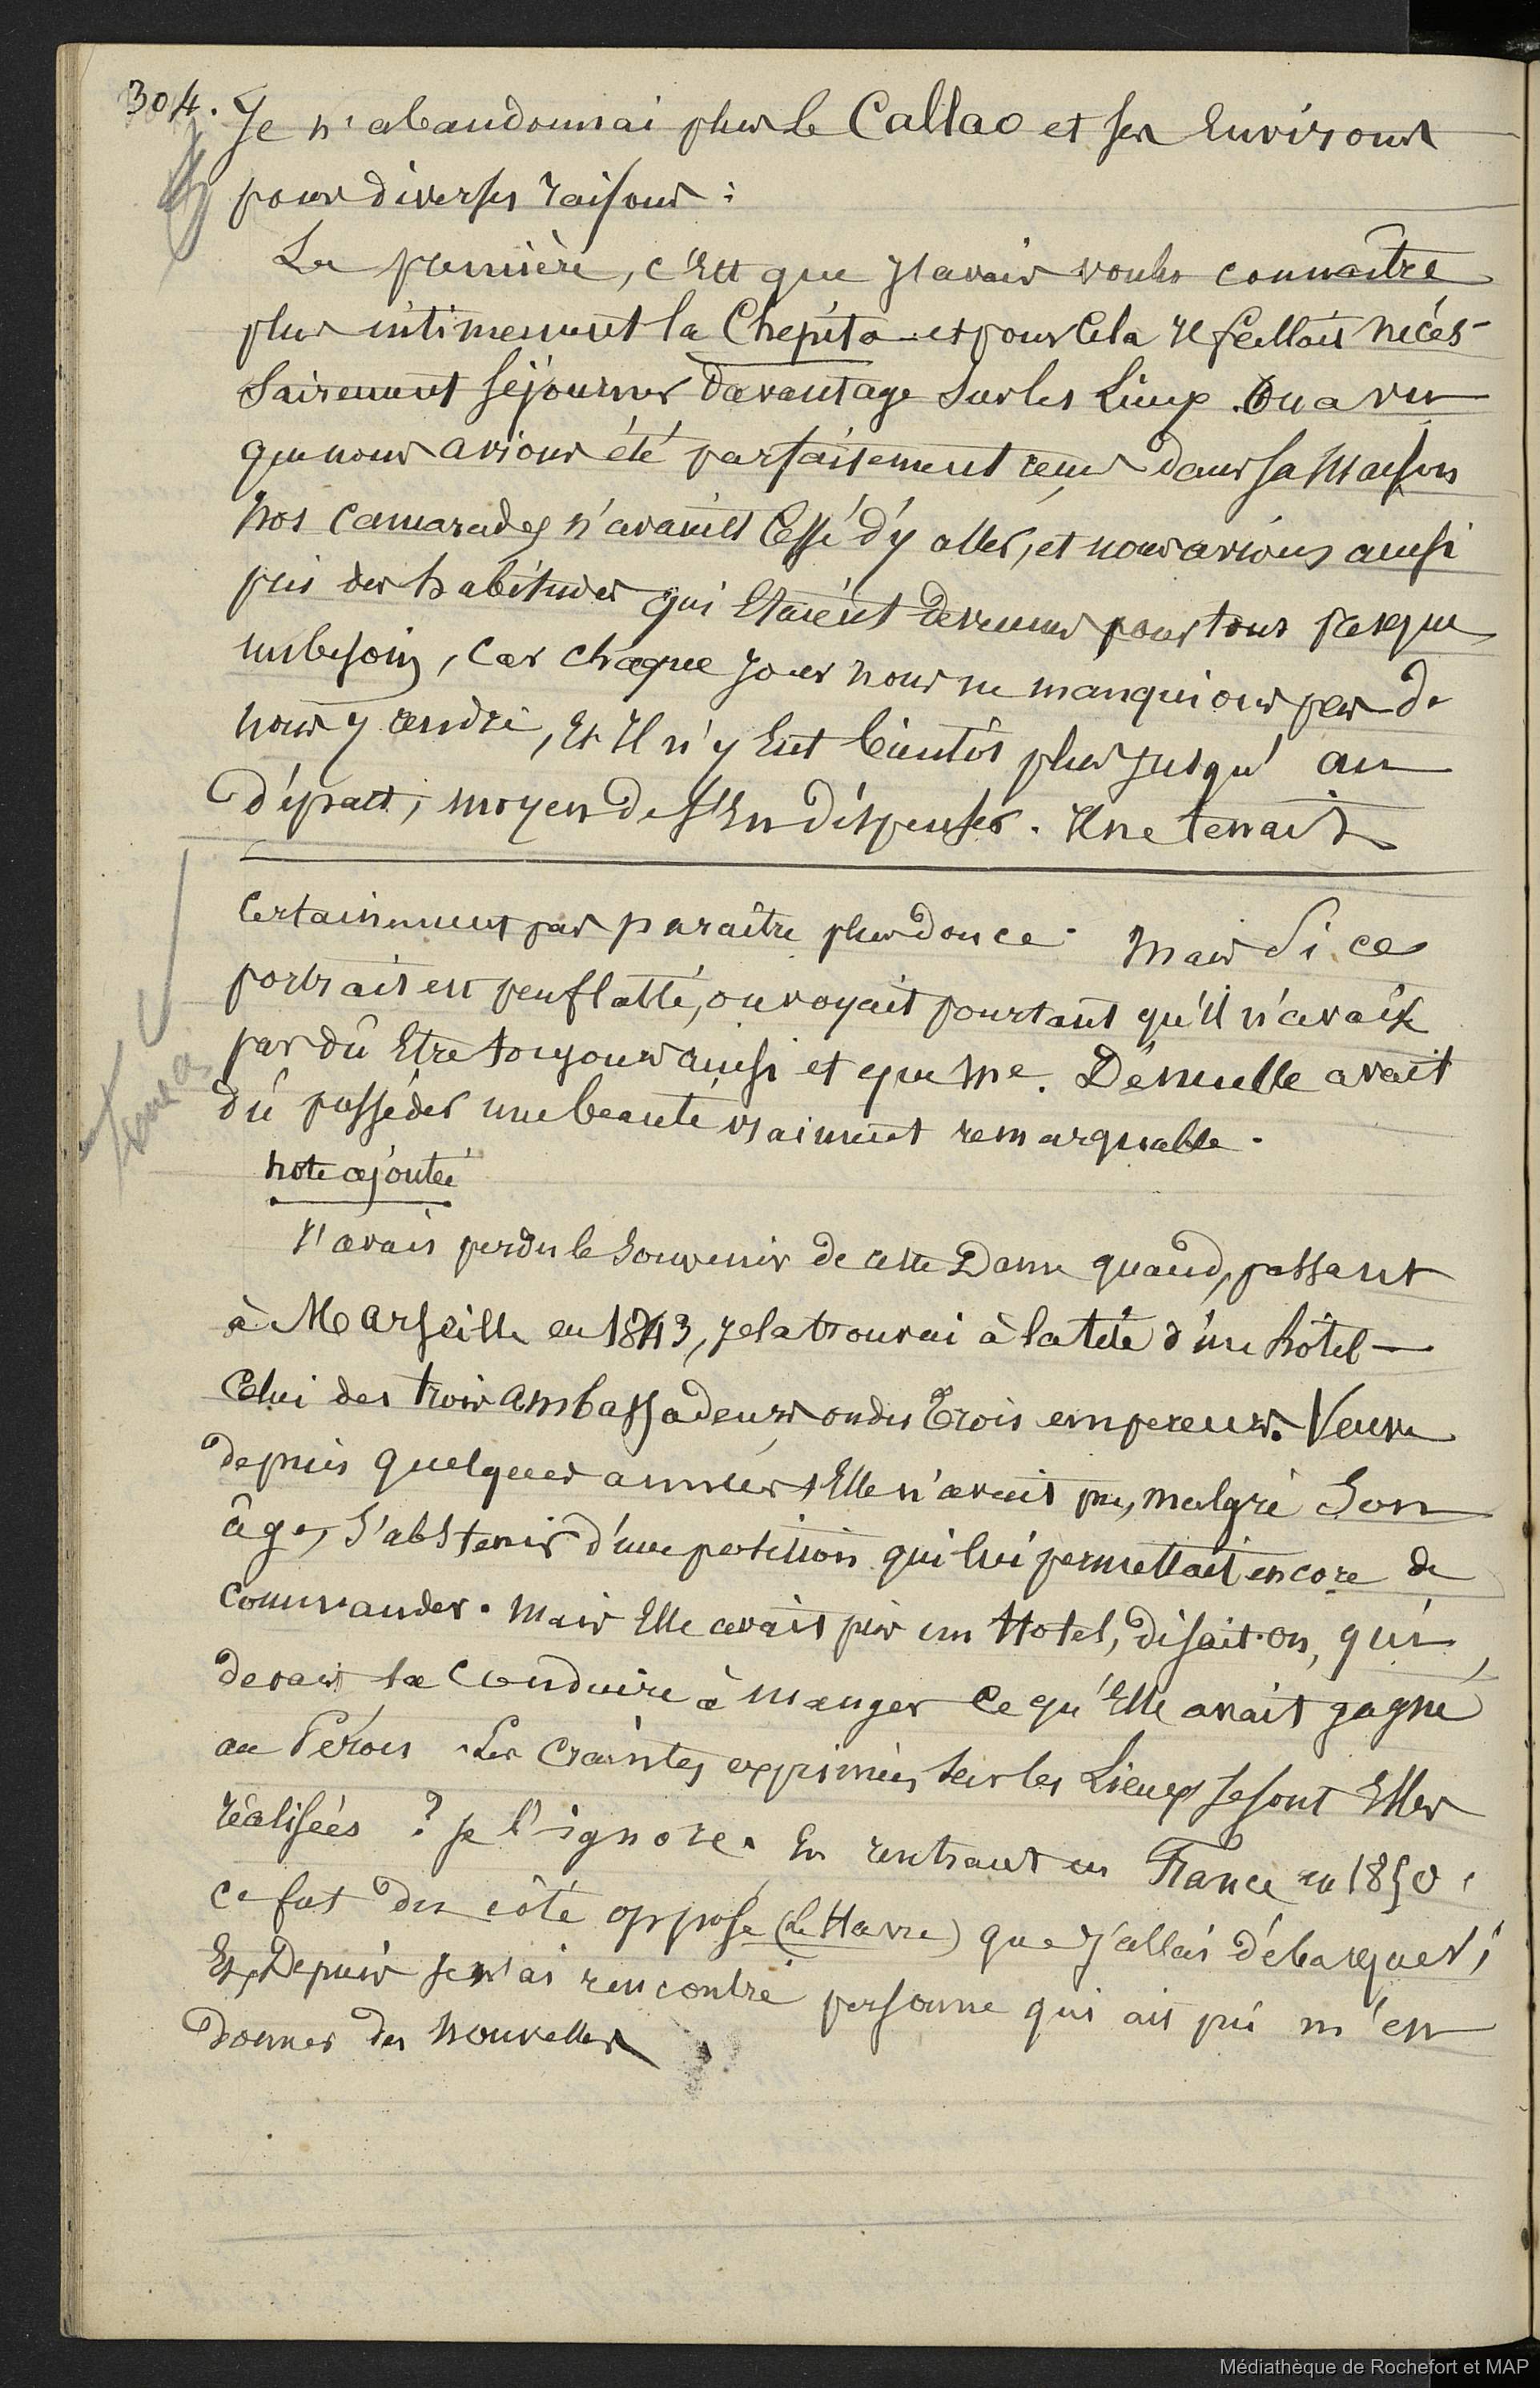 304. Je n'abandonnai plus le Callao et ses Environs
pour diverses raisons :
La première, c'Est que j'avais voulu connaître
plus intimement la Chepita et pour Cela Il fallait néces-
sairement séjourner davantage sur les Lieux. On a vu
que nous avions été parfaitement reçus dans sa Maison
Nos Camarades n'avaient Cessé d'y aller, et nous avions aussi
pris des habitudes qui Etaient devenues pour tous presque
un besoin, Car chaque jour nous ne manquions pas de
nous y rendre, Et Il n'y Eut bientôt plus jusqu' au
départ, moyen de s'En dispenser. Il ne tenait
Certainement pas paraître plus douce. Mais Si ce
portrait est peu flatté, on voyait pourtant qu'Il n'avait
pas dû Etre toujours ainsi et que Me. Demelle avait
dû posséder une beauté vraiment remarquable.
note ajoutée
J'avais perdu le Souvenir de cette Dame quand, passant
à Marseille en 1843, je la trouvai à la tête d'un hôtel —
Celui des trois ambassadeurs ou des Trois empereurs. Veuve
depuis quelques années, Elle n'avait pu, malgré Son
âge, S'abstenir d'une position qui lui permettait encore de
Commander. Mais Elle avait pris un Hotel, disait-on, qui
devait la Conduire à manger Ce qu'Elle avait gagné
au Pérou. Les Craintes exprimées sur les Lieux se sont Elles
réalisées ? je l'ignore. En rentrant en France en 1850,
Ce fut du côté opposé (Le Havre) que j'allai débarquer,
Et, Depuis je n'ai rencontré personne qui ait pu m'en
donner des nouvelles